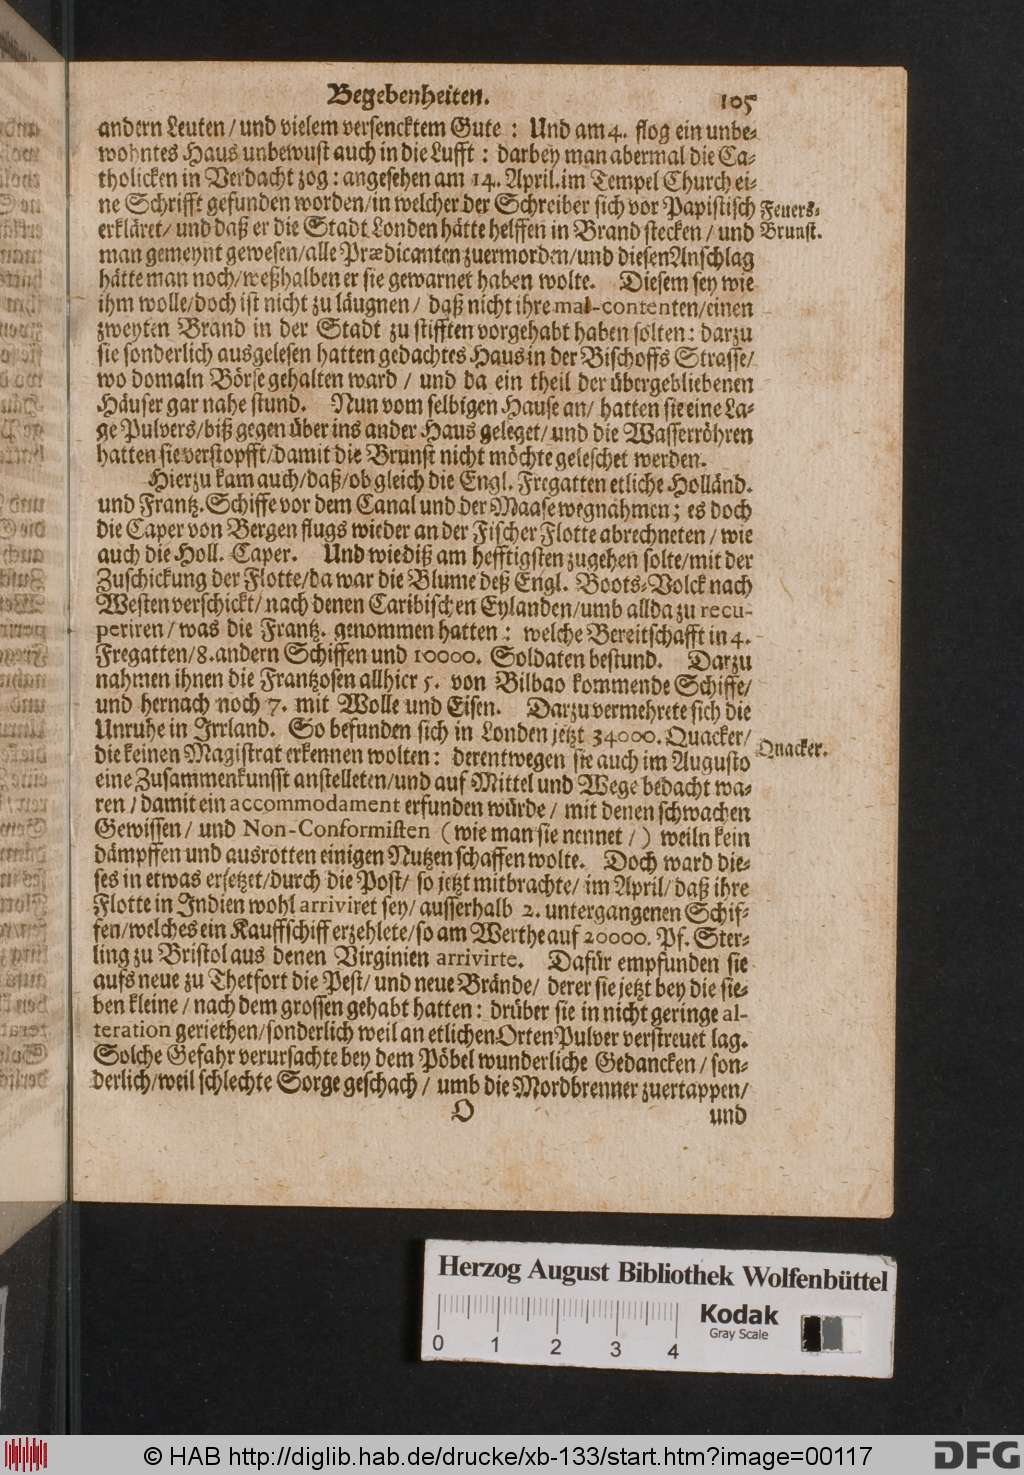 Begebenheiten. 105
andern Leuten / und vielem versencktem Gute : Und am 4. flog ein unbe-
wohntes Haus unbewust auch in die Lufft : darbey man abermal die Ca-
tholicken in Verdacht zog : angesehen am 14. April. im Tempel Church ei-
ne Schrifft gefunden worden / in welcher der Schreiber sich vor Papistisch
erkläret / und daß er die Stadt Londen hätte helffen in Brand stecken / und
man gemeynt gewesen / alle Prædicanten zuermorden / und diesen Anschlag
hätte man noch / weßhalben er sie gewarnet haben wolte. Diesem sey wie
ihm wolle / doch ist nicht zu läugnen / daß nicht ihre mal-contenten / einen
zweyten Brand in der Stadt zu stifften vorgehabt haben solten : darzu
sie sonderlich ausgelesen hatten gedachtes Haus in der Bischoffs Strasse /
wo domaln Börse gehalten ward / und da ein theil der übergebliebenen
Häuser gar nahe stund. Nun vom selbigen Hause an / hatten sie eine La-
ge Pulvers / biß gegen über ins ander Haus geleget / und die Wasserröhren
hatten sie verstopfft / damit die Brunst nicht möchte geleschet werden.
Feuers-
Brunst.
Hierzu kam auch / daß / ob gleich die Engl. Fregatten etliche Holländ.
und Frantz. Schiffe vor dem Canal und der Maase wegnahmen ; es doch
die Caper von Bergen flugs wieder an der Fischer Flotte abrechneten / wie
auch die Holl. Caper. Und wie diß am hefftigsten zugehen solte / mit der
Zuschickung der Flotte / da war die Blume deß Engl. Boots-Volck nach
Westen verschickt / nach denen Caribischen Eylanden / umb allda zu recu-
periren / was die Frantz. genommen hatten : welche Bereitschafft in 4.
Fregatten / 8. andern Schiffen und 10000. Soldaten bestund. Darzu
nahmen ihnen die Frantzosen allhier 5. von Bilbao kommende Schiffe /
und hernach noch 7. mit Wolle und Eisen. Darzu vermehrete sich die
Unruhe in Irrland. So befunden sich in Londen jetzt 34000. Quacker /
die keinen Magistrat erkennen wolten : derentwegen sie auch im Augusto
eine Zusammenkunfft anstelleten / und auf Mittel und Wege bedacht wa-
ren / damit ein accommodament erfunden würde / mit denen schwachen
Gewissen / und Non-Conformisten ( wie man sie nennet / ) weiln kein
dämpffen und ausrotten einigen Nutzen schaffen wolte. Doch ward die-
ses in etwas ersetzet / durch die Post / so jetzt mitbrachte / im April / daß ihre
Flotte in Indien wohl arriviret sey / ausserhalb 2. untergangenen Schif-
fen / welches ein Kauffschiff erzehlete / so am Werthe auf 20000. Pf. Ster-
ling zu Bristol aus denen Virginien arrivirte. Dafür empfunden sie
aufs neue zu Thetfort die Pest / und neue Brände / derer sie jetzt bey die sie-
ben kleine / nach dem grossen gehabt hatten : drüber sie in nicht geringe al-
teration geriethen / sonderlich weil an etlichen Orten Pulver verstreuet lag.
Solche Gefahr verursachte bey dem Pöbel wunderliche Gedancken / son-
derlich / weil schlechte Sorge geschach / umb die Mordbrenner zuertappen /
Quacker.
O und
Herzog August Bibliothek Wolfenbüttel
Kodak
Gray Scale
0 1 2 3 4
© HAB http://diglib.hab.de/drucke/xb-133/start.htm?image=00117
DFG